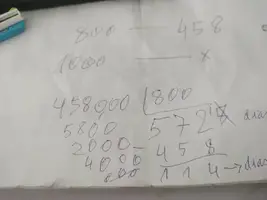 800 — 458
1000 — x
458000 | 800
5800 572
2000 - 458
4000 114 →
000